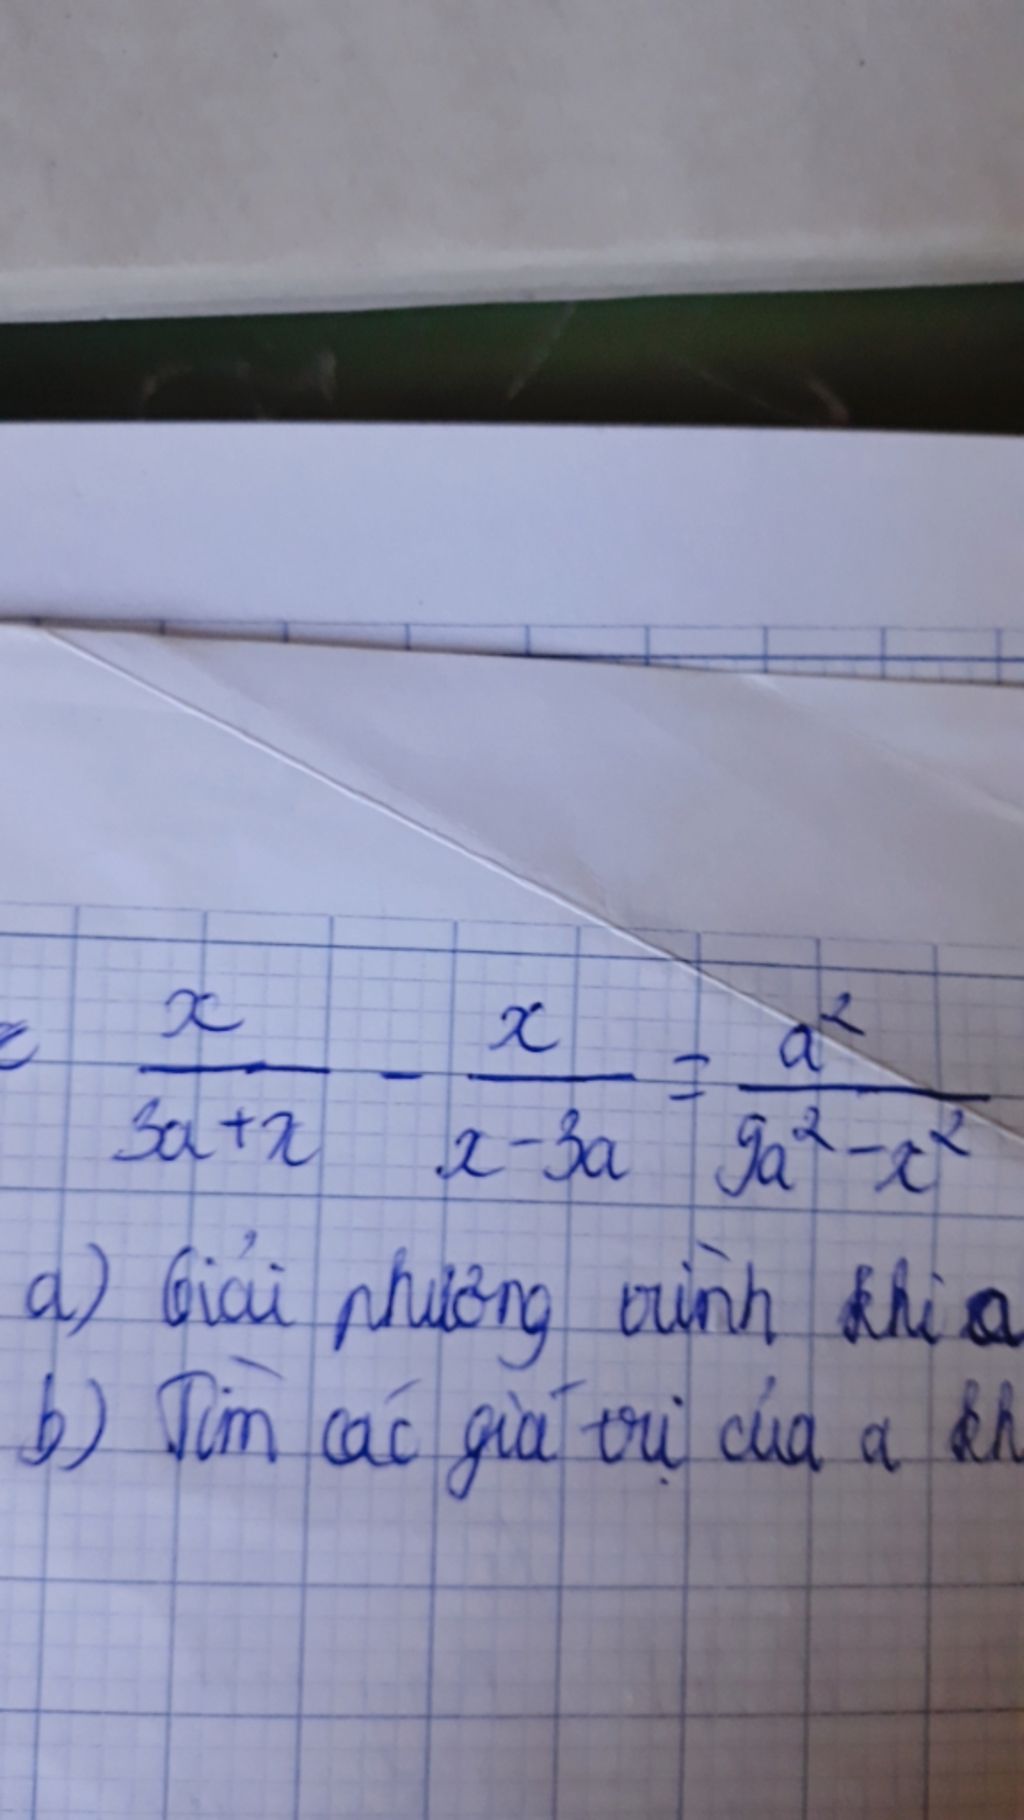 x/(3a+x) - x/(x-3a) = a²/(9a²-x²)
a) Giải phương trình khi a
b) Tìm các giá trị của a kh